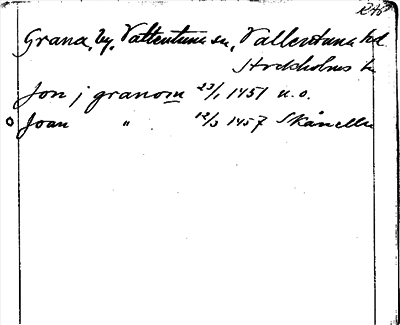 Grana, by, Vallentuna sn, Vallentuna hd
Stockholms l.
Jon j granom 23/1 1451 u.o.
Joan " 12/3 1457 Skånella